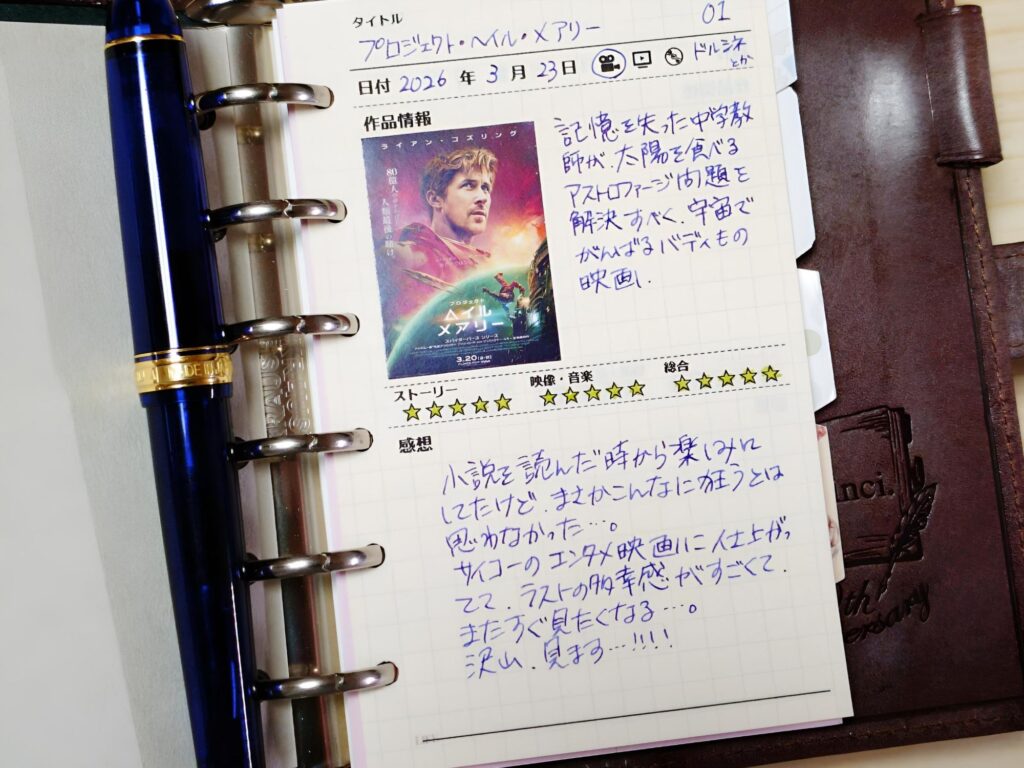 タイトル
プロジェクト・ヘイル・メアリー
01
日付 2026 年 3 月 23 日
ドルシネ
とか
作品情報
ライアン・ゴズリング
プロジェクト
ヘイル
メアリー
3.20
記憶を失った中学教
師が、太陽を食べる
アストロファージ問題を
解決すべく、宇宙で
がんばるバディもの
映画。
ストーリー
映像・音楽
総合
感想
小説を読んだ時から楽しみに
してたけど、まさかこんなに狂うとは
思わなかった…。
サイコーのエンタメ映画に仕上がっ
てて、ラストの多幸感がすごくて、
またすぐ見たくなる…。
沢山、見ます…!!!!
inci.
th
ersary